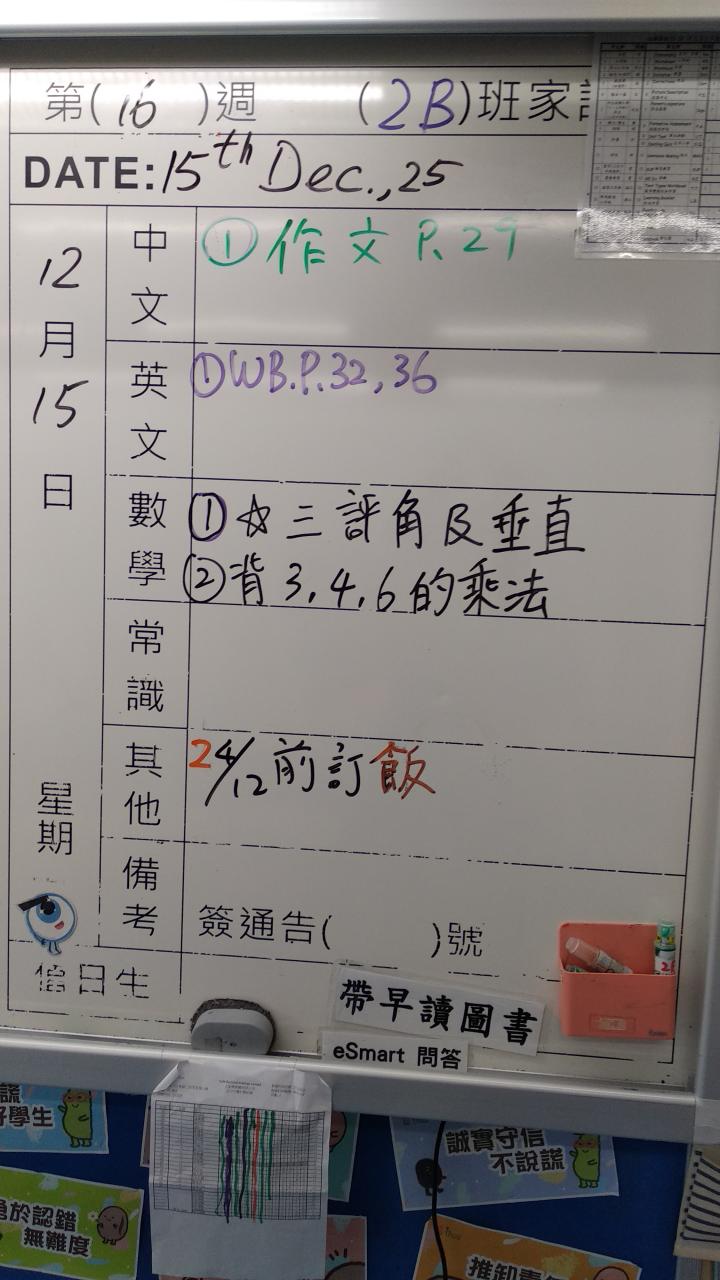 第(16)週 (2B)班家
DATE: 15th Dec., 25
12月15日
星期
中文
①作文 P.29
英文
①WB.P.32,36
數學
①☆三評角及垂直
②背3,4,6的乘法
常識
其他
24/12前訂飯
備考
簽通告( )號
值日生
帶早讀圖書
eSmart 問答
誠實守信
不說謊
於認錯
無難度
推卸
謊
好學生